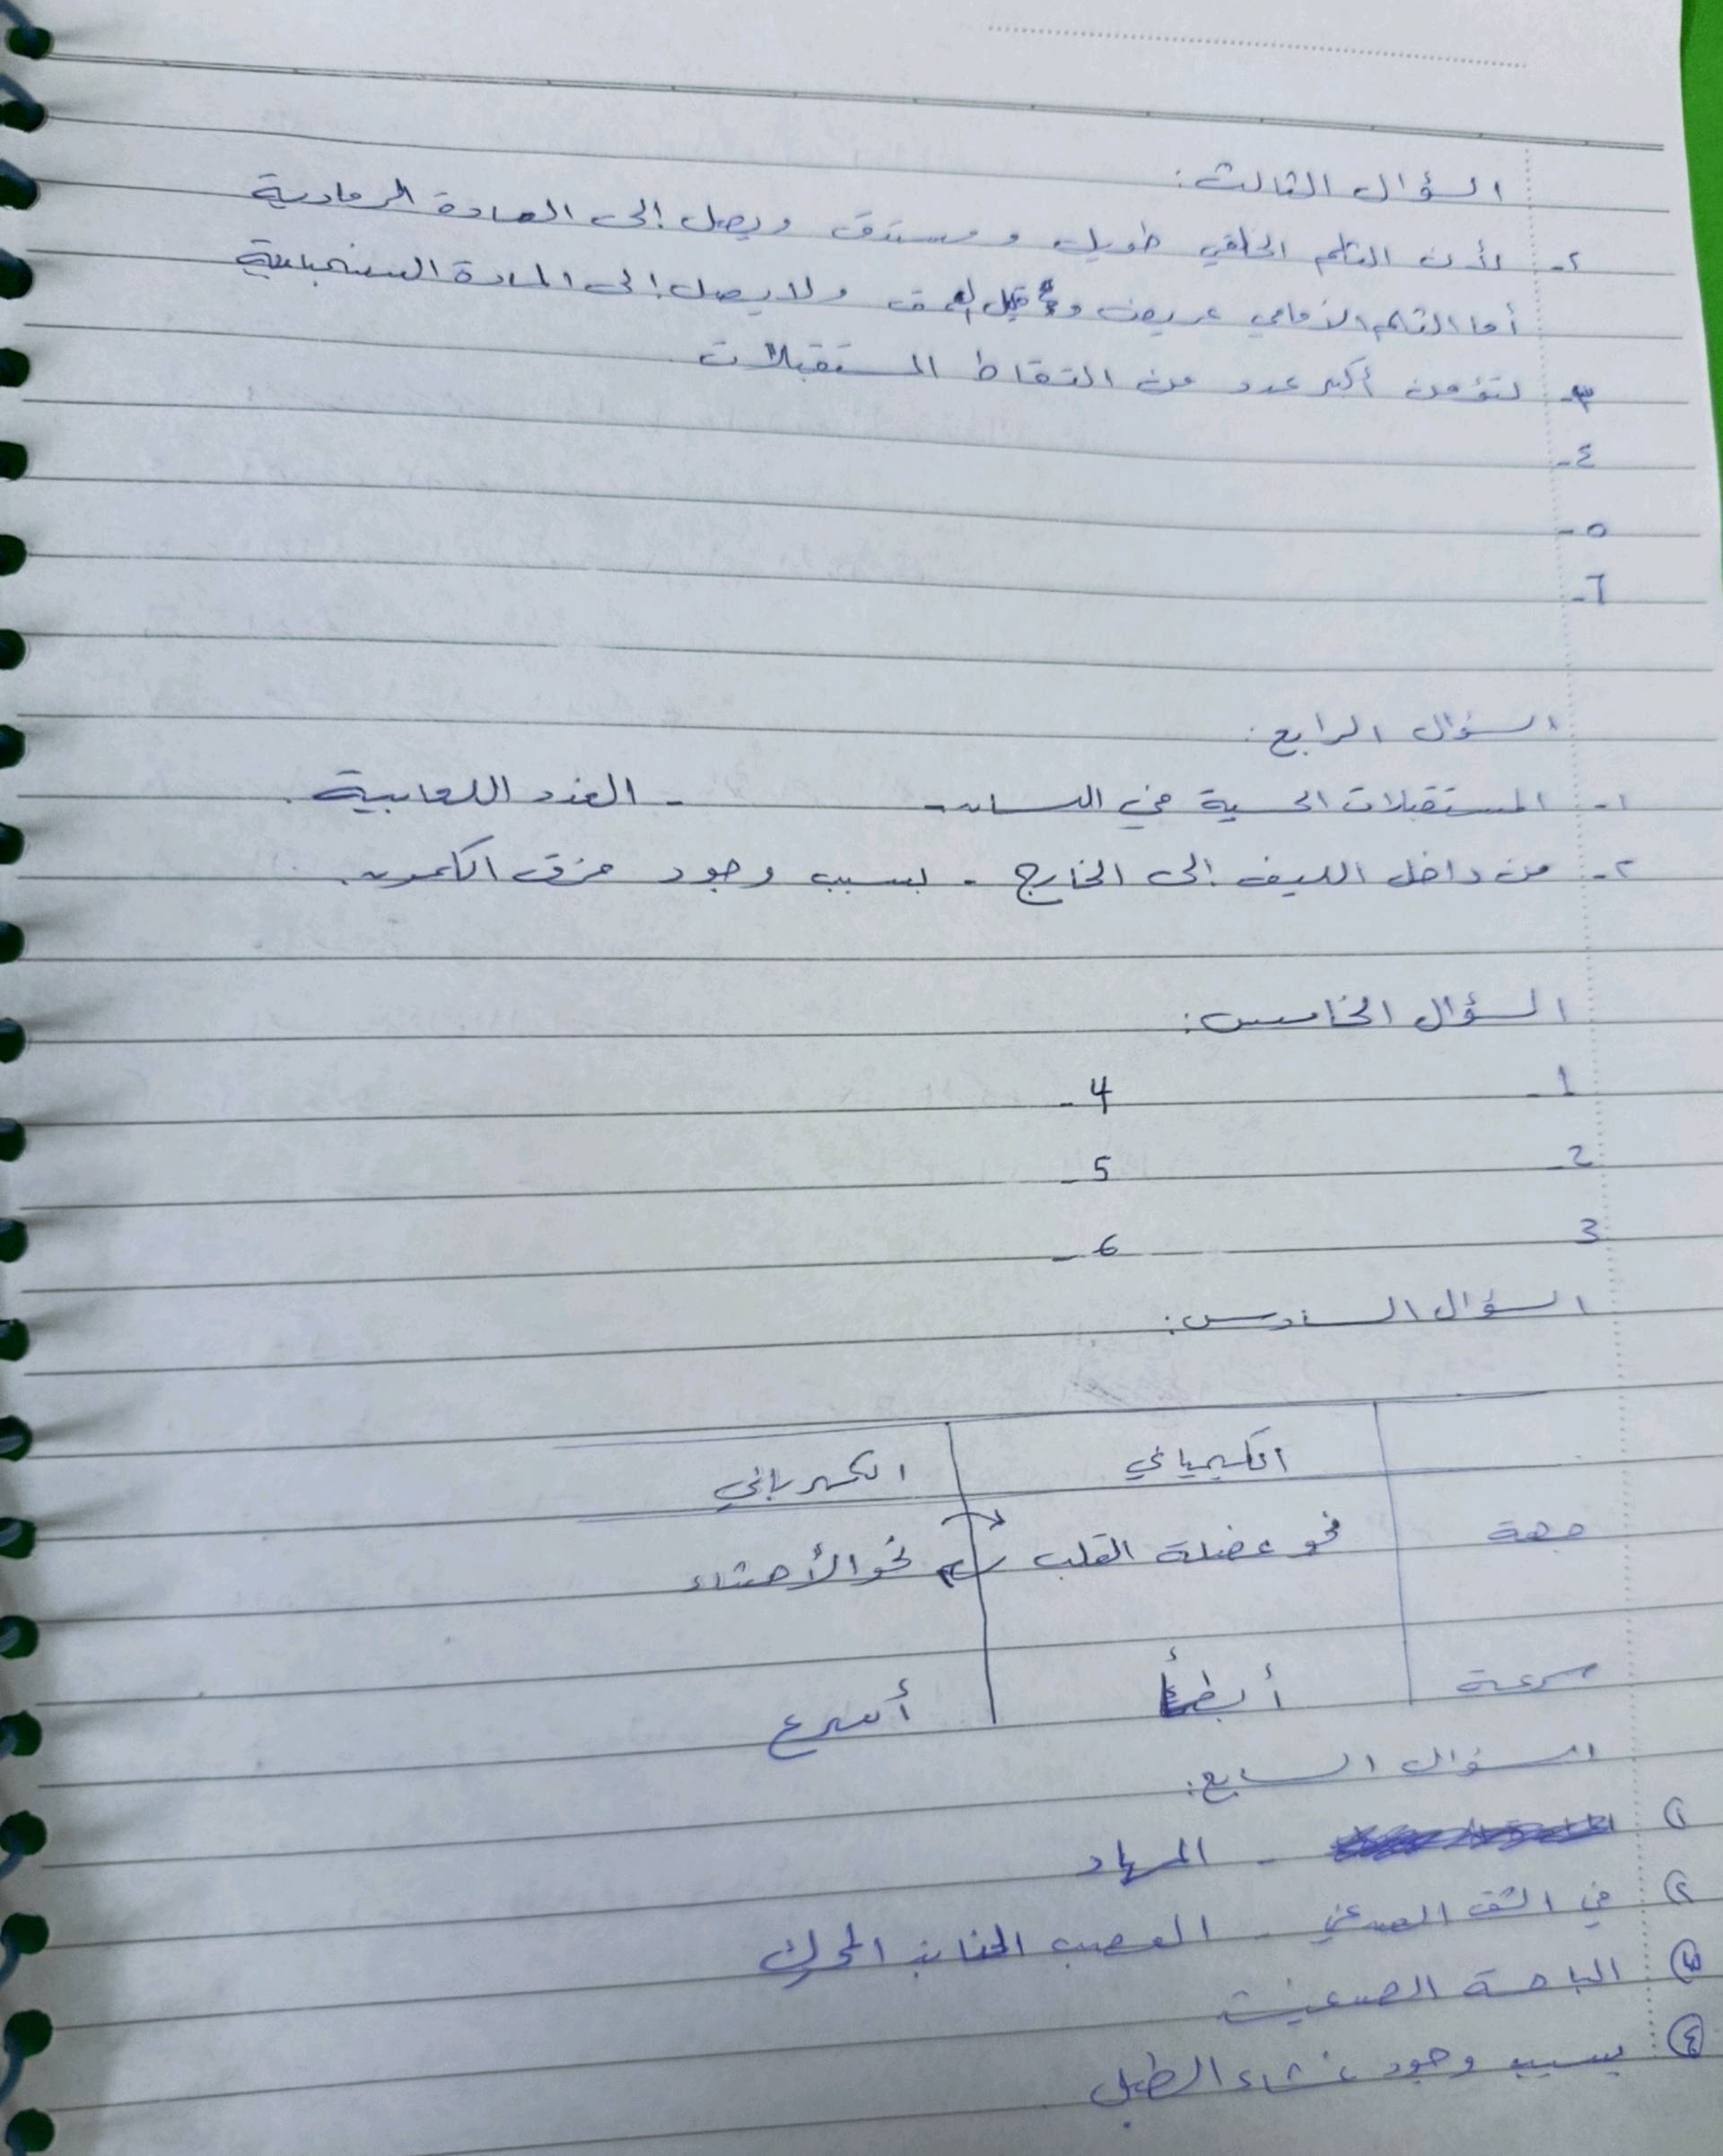 السؤال الثالث:
٢- لأن الثلم الخلفي طويل و مستدق ويصل إلى المادة الرمادية
أما الثلم الأمامي عريض و قليل العمق ولا يصل إلى المادة السنجابية
٣- لتؤمن أكبر عدد من التقاط المستقبلات
٤-
٥-
٦-
السؤال الرابع:
١- المستقبلات الحسية في اللسان - - الغدد اللعابية.
٢- من داخل الليف إلى الخارج - بسبب وجود فرق الكمون.
السؤال الخامس:
1- 4-
2- 5-
3 6-
السؤال السادس:
الكيميائي الكهربائي
جهة نحو عضلة القلب نحو الأحشاء
سرعة أبطأ أسرع
السؤال السابع:
① - المهاد
② في الشق الصدغي - العصب المحرك
③ الباحة الصدغية
④ بسبب وجود غشاء الطبل